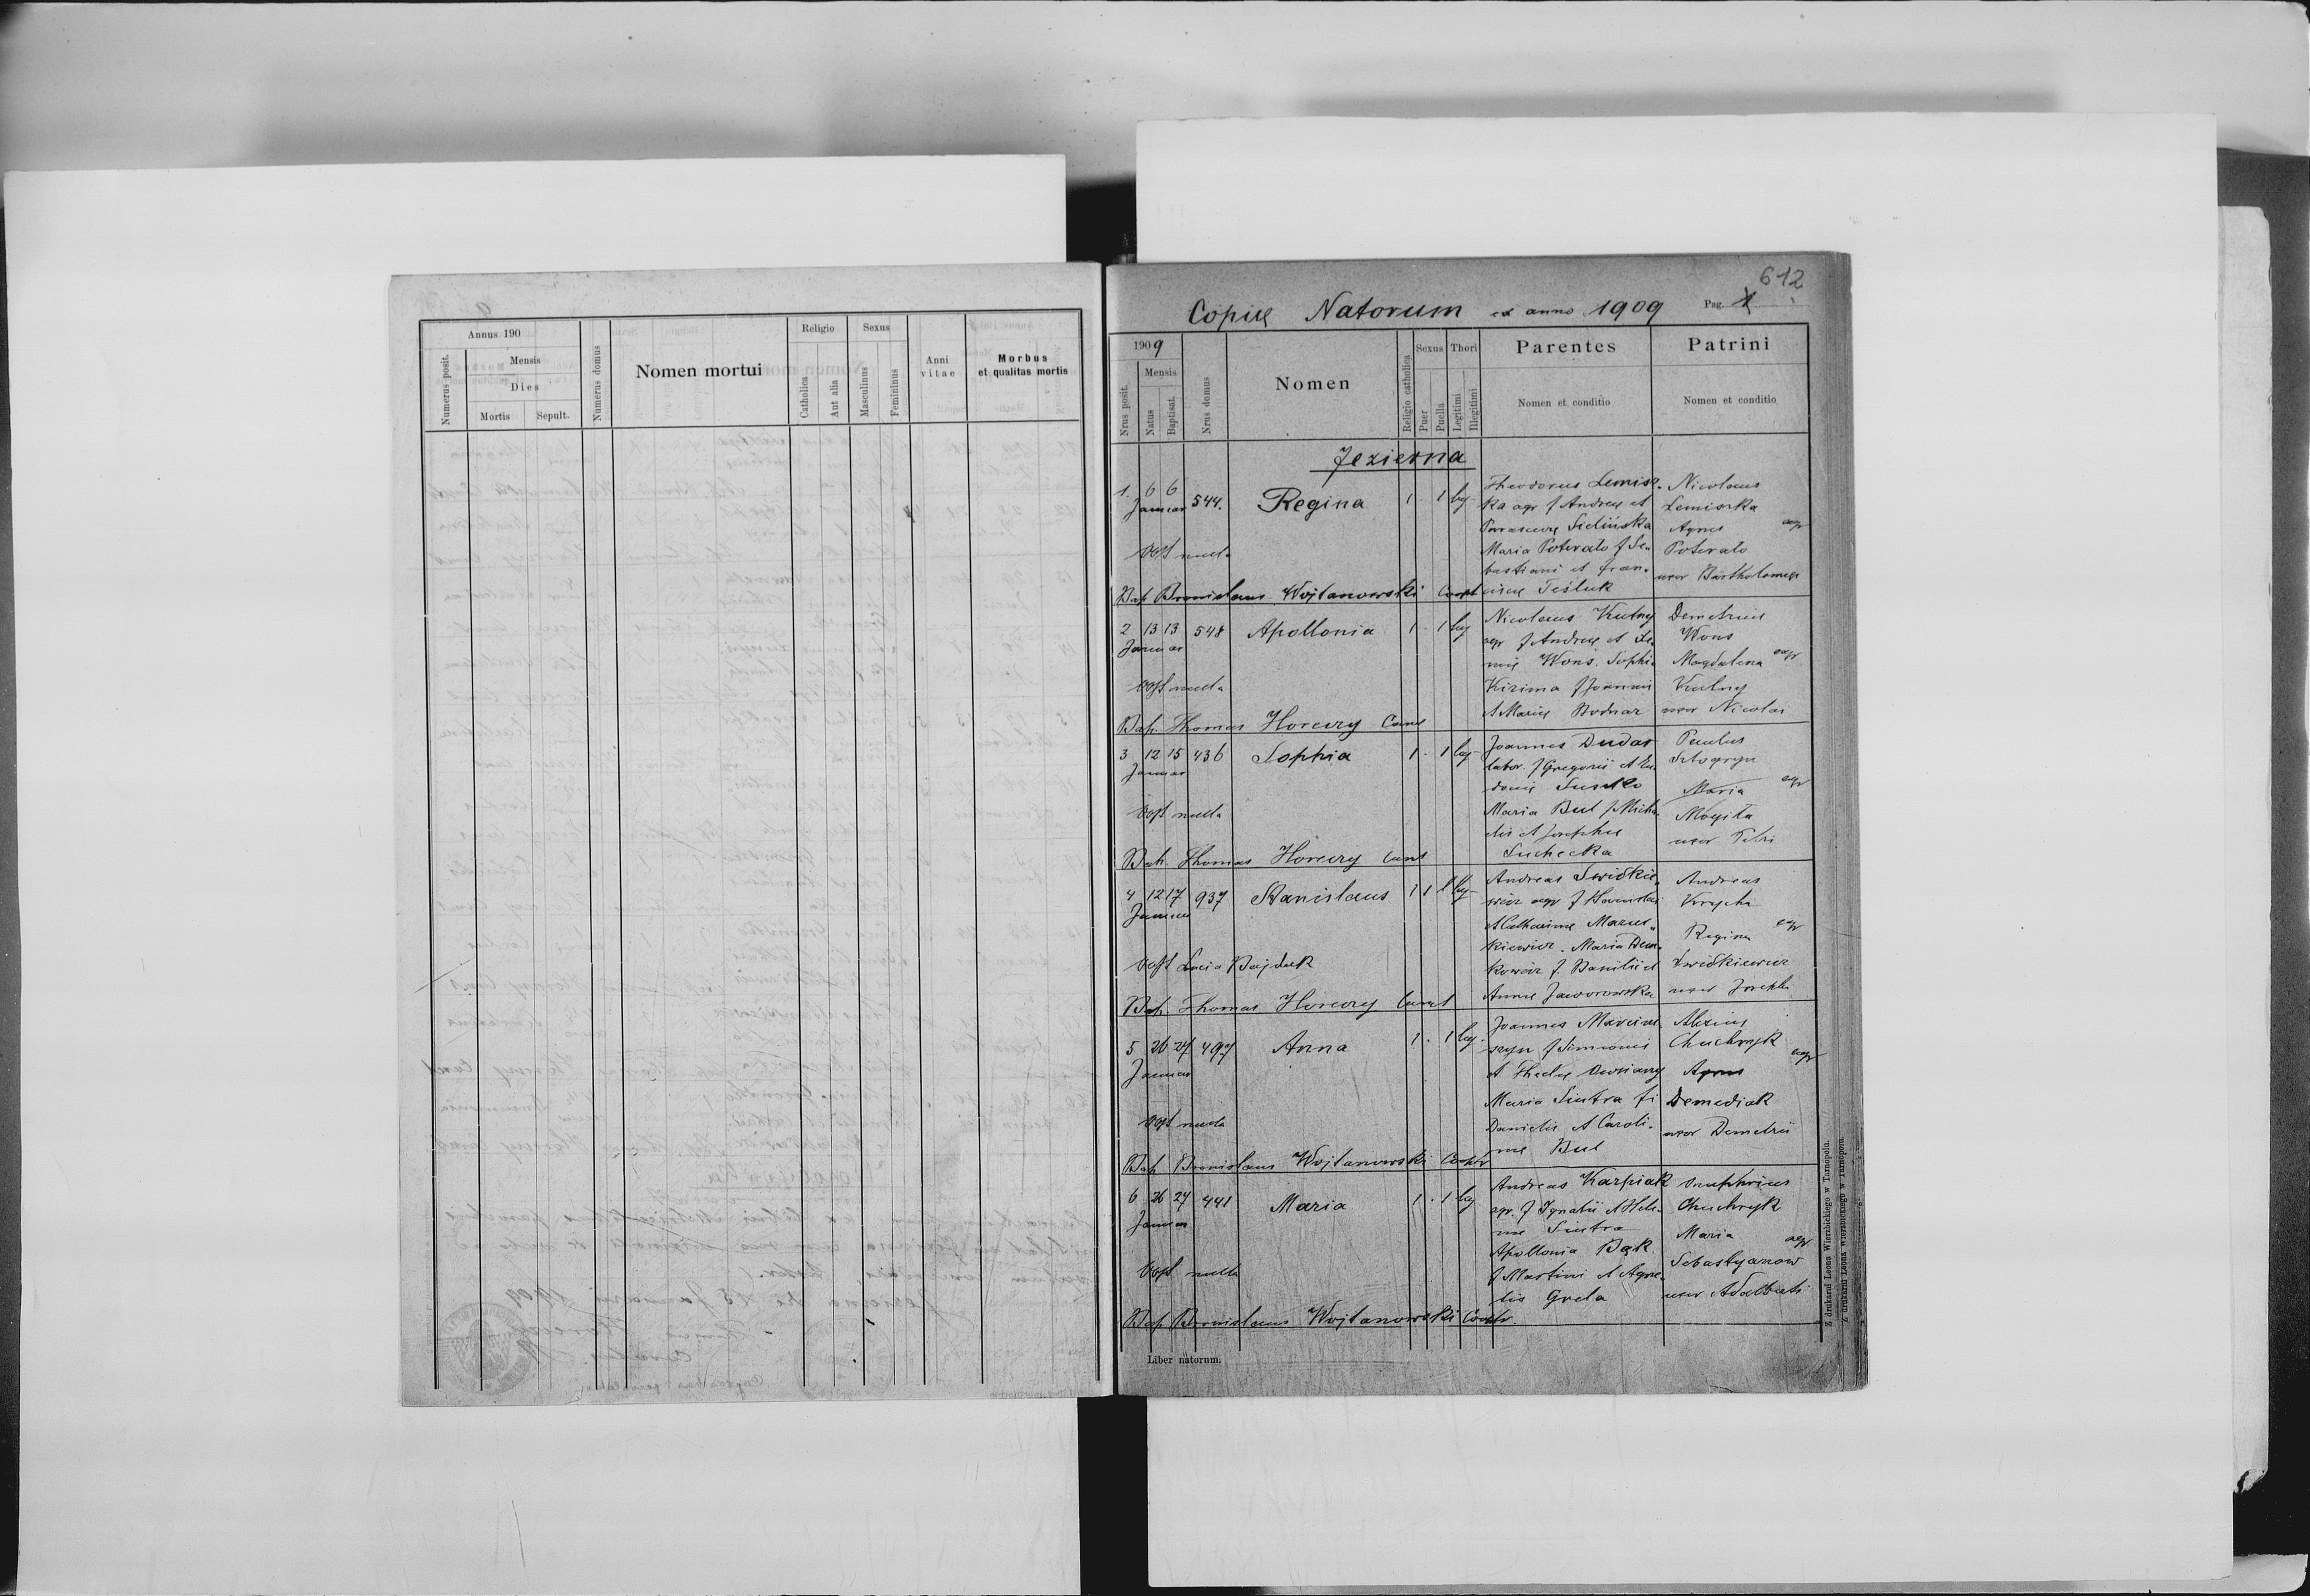 Annus 190
Numerus posit.
Mensis
Dies
Mortis
Sepult.
Numerus domus
Nomen mortui
Religio
Catholica
Aut alia
Sexus
Masculinus
Femininus
Anni
vitae
Morbus
et qualitas mortis
612
Copiae Natorum ex anno 1909 Pag. 1
1909
Nrus posit.
Mensis
Natus
Baptisat.
Nrus domus
Nomen
Religio catholica
Sexus
Puer
Puella
Thori
Legitimi
Illegitimi
Parentes
Nomen et conditio
Patrini
Nomen et conditio
Jezierna
1. 6 6 544. Regina 1 . 1 leg
Januar
Obst nulla
Bap Bronislaus Wojtanowski Coop
Theodorus Lemisz-
ka agr f Andreae et
Parasceve Sielińska
Maria Poterało f Se-
bastiani et Fran-
ciscae Teśluk
Nicolaus
Lemiszka
Agnes agr
Poterało
uxor Bartholomaei
2 13 13 548 Apollonia 1 . 1 leg
Januar
Obst nulla
Bap. Thomas Horeczy Canc
Nicolaus Kutny
agr f Andreae et
Wons. Sophia
Kirima f Joannis
et Mariae Bodnar
Demetrius
Wons
Magdalena agr
Kutny
uxor Nicolai
3 12 15 436 Sophia 1 . 1 leg
Januar
Obst nulla
Bap. Thomas Horeczy
Joannes Dudar
labor. f Gregorii et Eu-
dociae
Maria But f Micha-
elis et Josephae
Suchecka
Paulus
Maria agr
Mogiła
uxor Petri
4 12 17 937 Stanislaus 1 1 . leg
Januar
Obst Lucia Bajduk
Bap. Thomas Horeczy
Andreas Zwiśkie-
wicz agr f Stanislai
et Catharinae Marus-
kiewicz. Maria Dem-
kowicz f Basilii et
Annae Jaworowska
Andreas
Regina agr
Zwiśkiewicz
uxor Josephi
5 26 27 497 Anna 1 . 1 leg.
Januar
Obst nulla
Bap Bronislaus Wojtanowski Coop
Joannes Marcin-
szyn f Simeonis
et Theclae
Maria Siutra f
Danielis et Caroli-
nae But
Alexius
Chuchryk
Agnes agr
Demediak
uxor Demetrii
6 26 27 441 Maria 1 . 1 leg
Januar
Obst nulla
Bap Bronislaus Wojtanowski Coop
Andreas Karpiak
agr. f Ignatii et Hele-
nae Siutra
Apollonia Bąk
f Martini et Agne-
tis Grela
Onuphrius
Chuchryk
Maria agr
Sebastyanow
uxor Adalberti
Liber natorum.
Z drukarni Leona Wierzbickiego w Tarnopolu.
Z drukarni Leona Wierzbickiego w Tarnopolu.